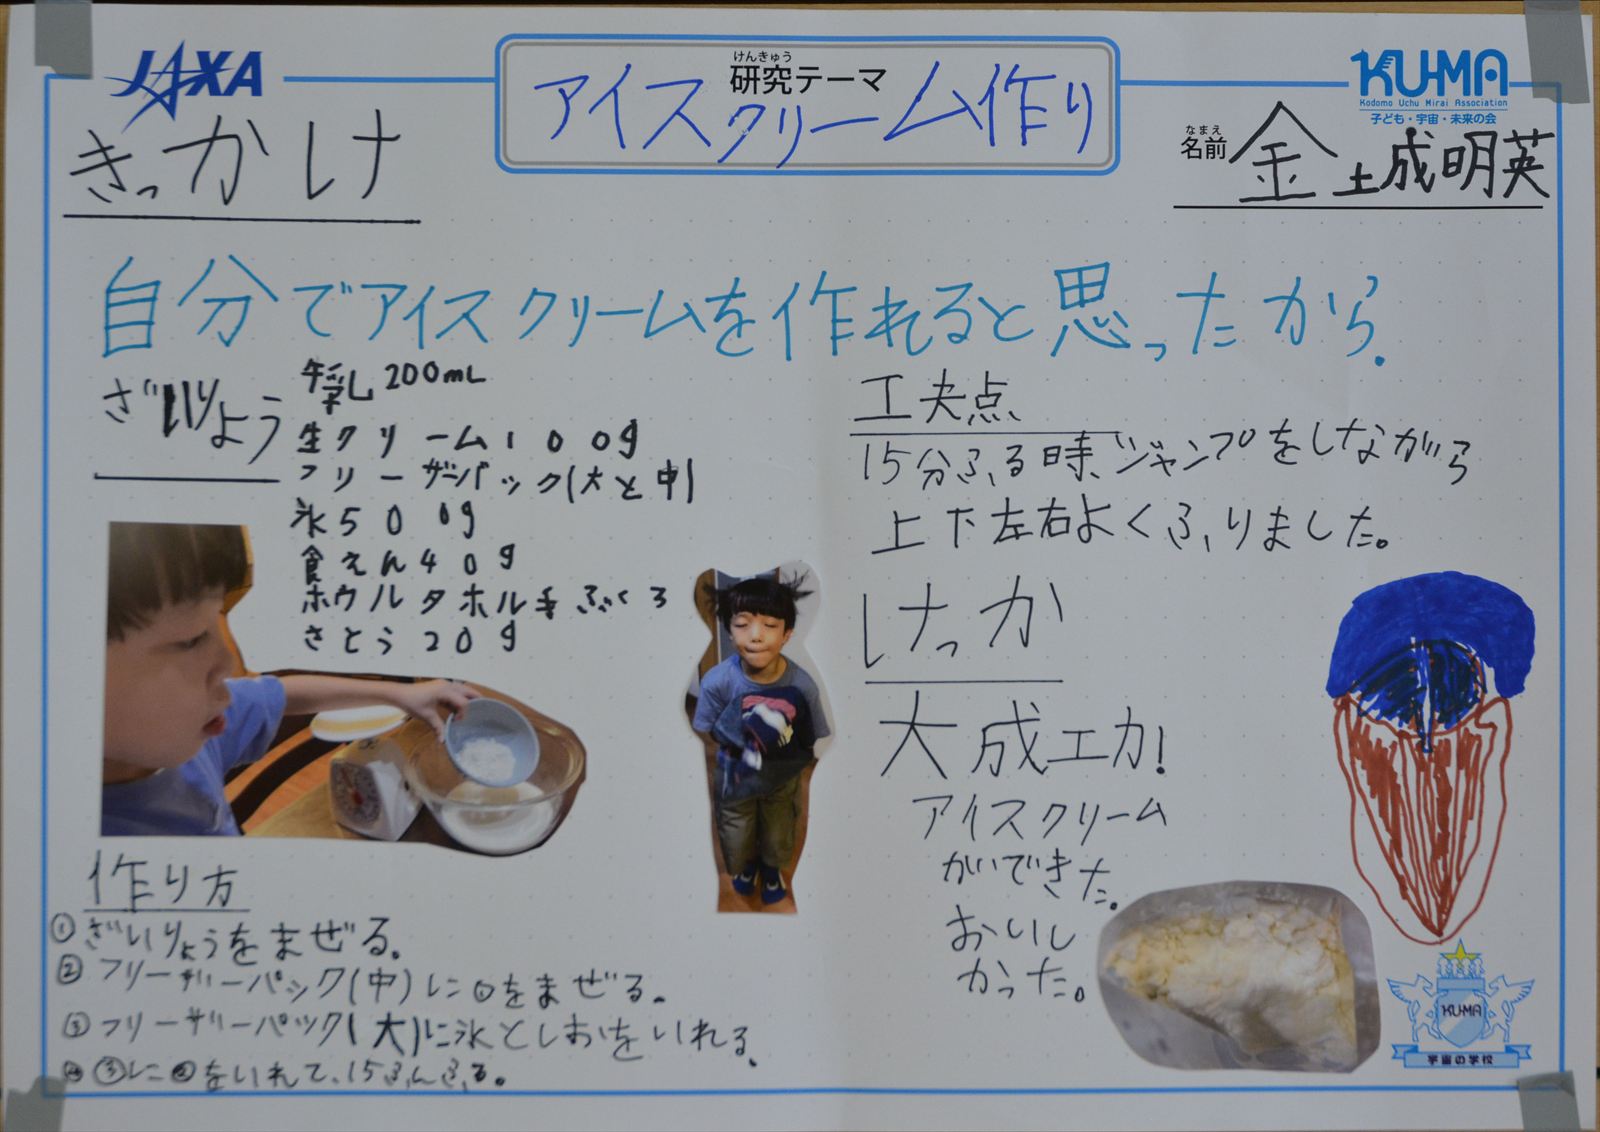 JAXA
けんきゅう
研究テーマ
アイスクリーム作り
KU-MA
Kodomo Uchu Mirai Association
子ども・宇宙・未来の会
なまえ
名前
金 土成明英
きっかけ
自分でアイスクリームを作れると思ったから.
ざいりょう
牛乳 200mL
生クリーム100g
フリーザーバック(大と中)
氷500g
食えん40g
ボウル タオル 手ぶくろ
さとう20g
作り方
①ざいりょうをまぜる。
②フリーザーパック(中)に①をまぜる。
③フリーザーパック(大)に氷としおをいれる。
④③に②をいれて、15ふんふる。
工夫点
15分ふる時、ジャンプをしながら
上下左右よくふりました。
けっか
大成工力!
アイスクリーム
ができた。
おいし
かった。
KU-MA
宇宙の学校